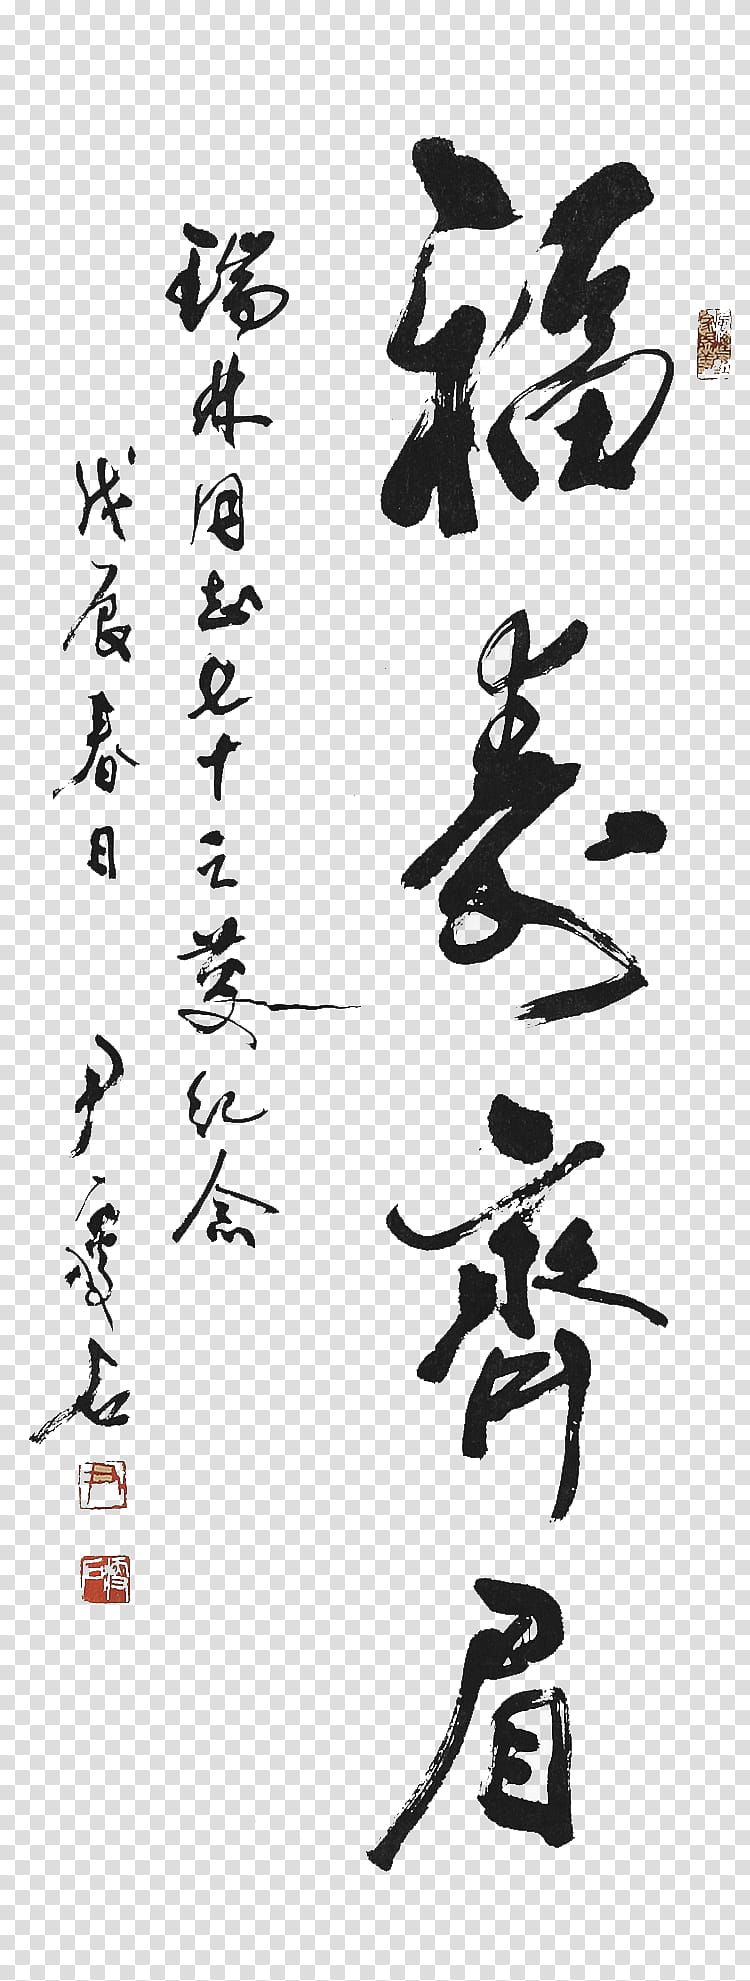 福寿齊眉
瑞林同志七十之慶纪念
戊辰春日 尹瘦石